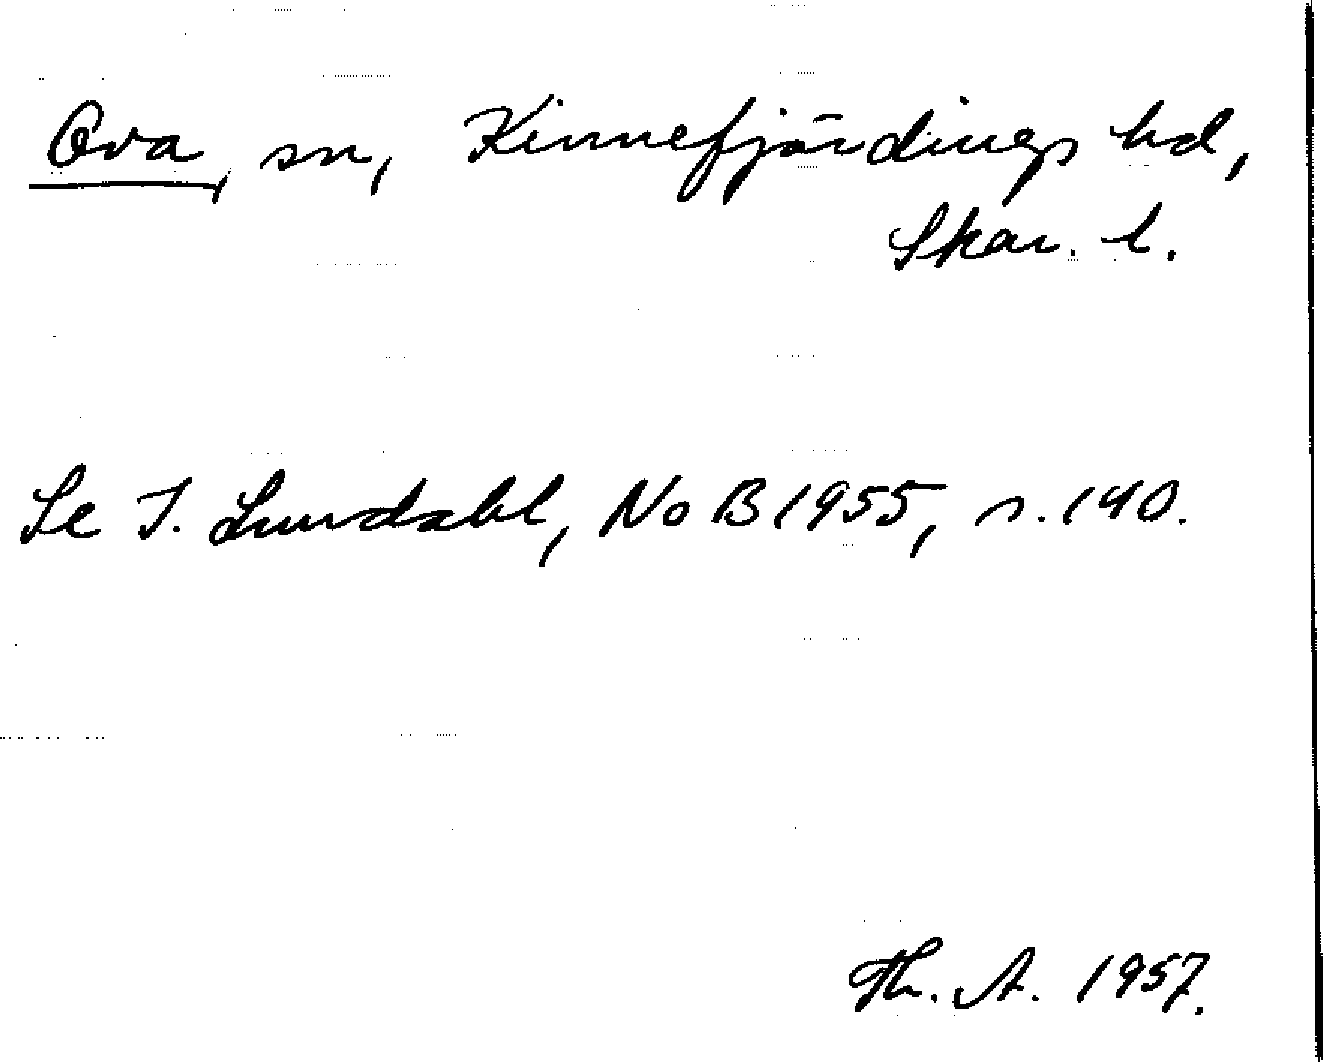 Ova, sn, Kinnefjärdings hd,
Skar. l.
Se I. Lundahl, NoB 1955, s. 140.
Th. A. 1957.